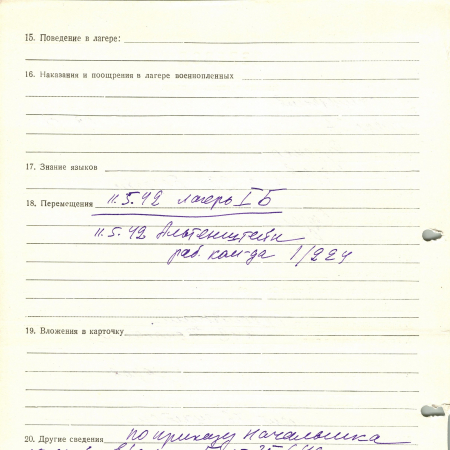 15. Поведение в лагере:
16. Наказания и поощрения в лагере военнопленных
17. Знание языков
18. Перемещения 11.5.42 лагерь I Б
11.5.42 Альтенштейн
раб. ком-да 1/224
19. Вложения в карточку
20. Другие сведения по приказу начальника